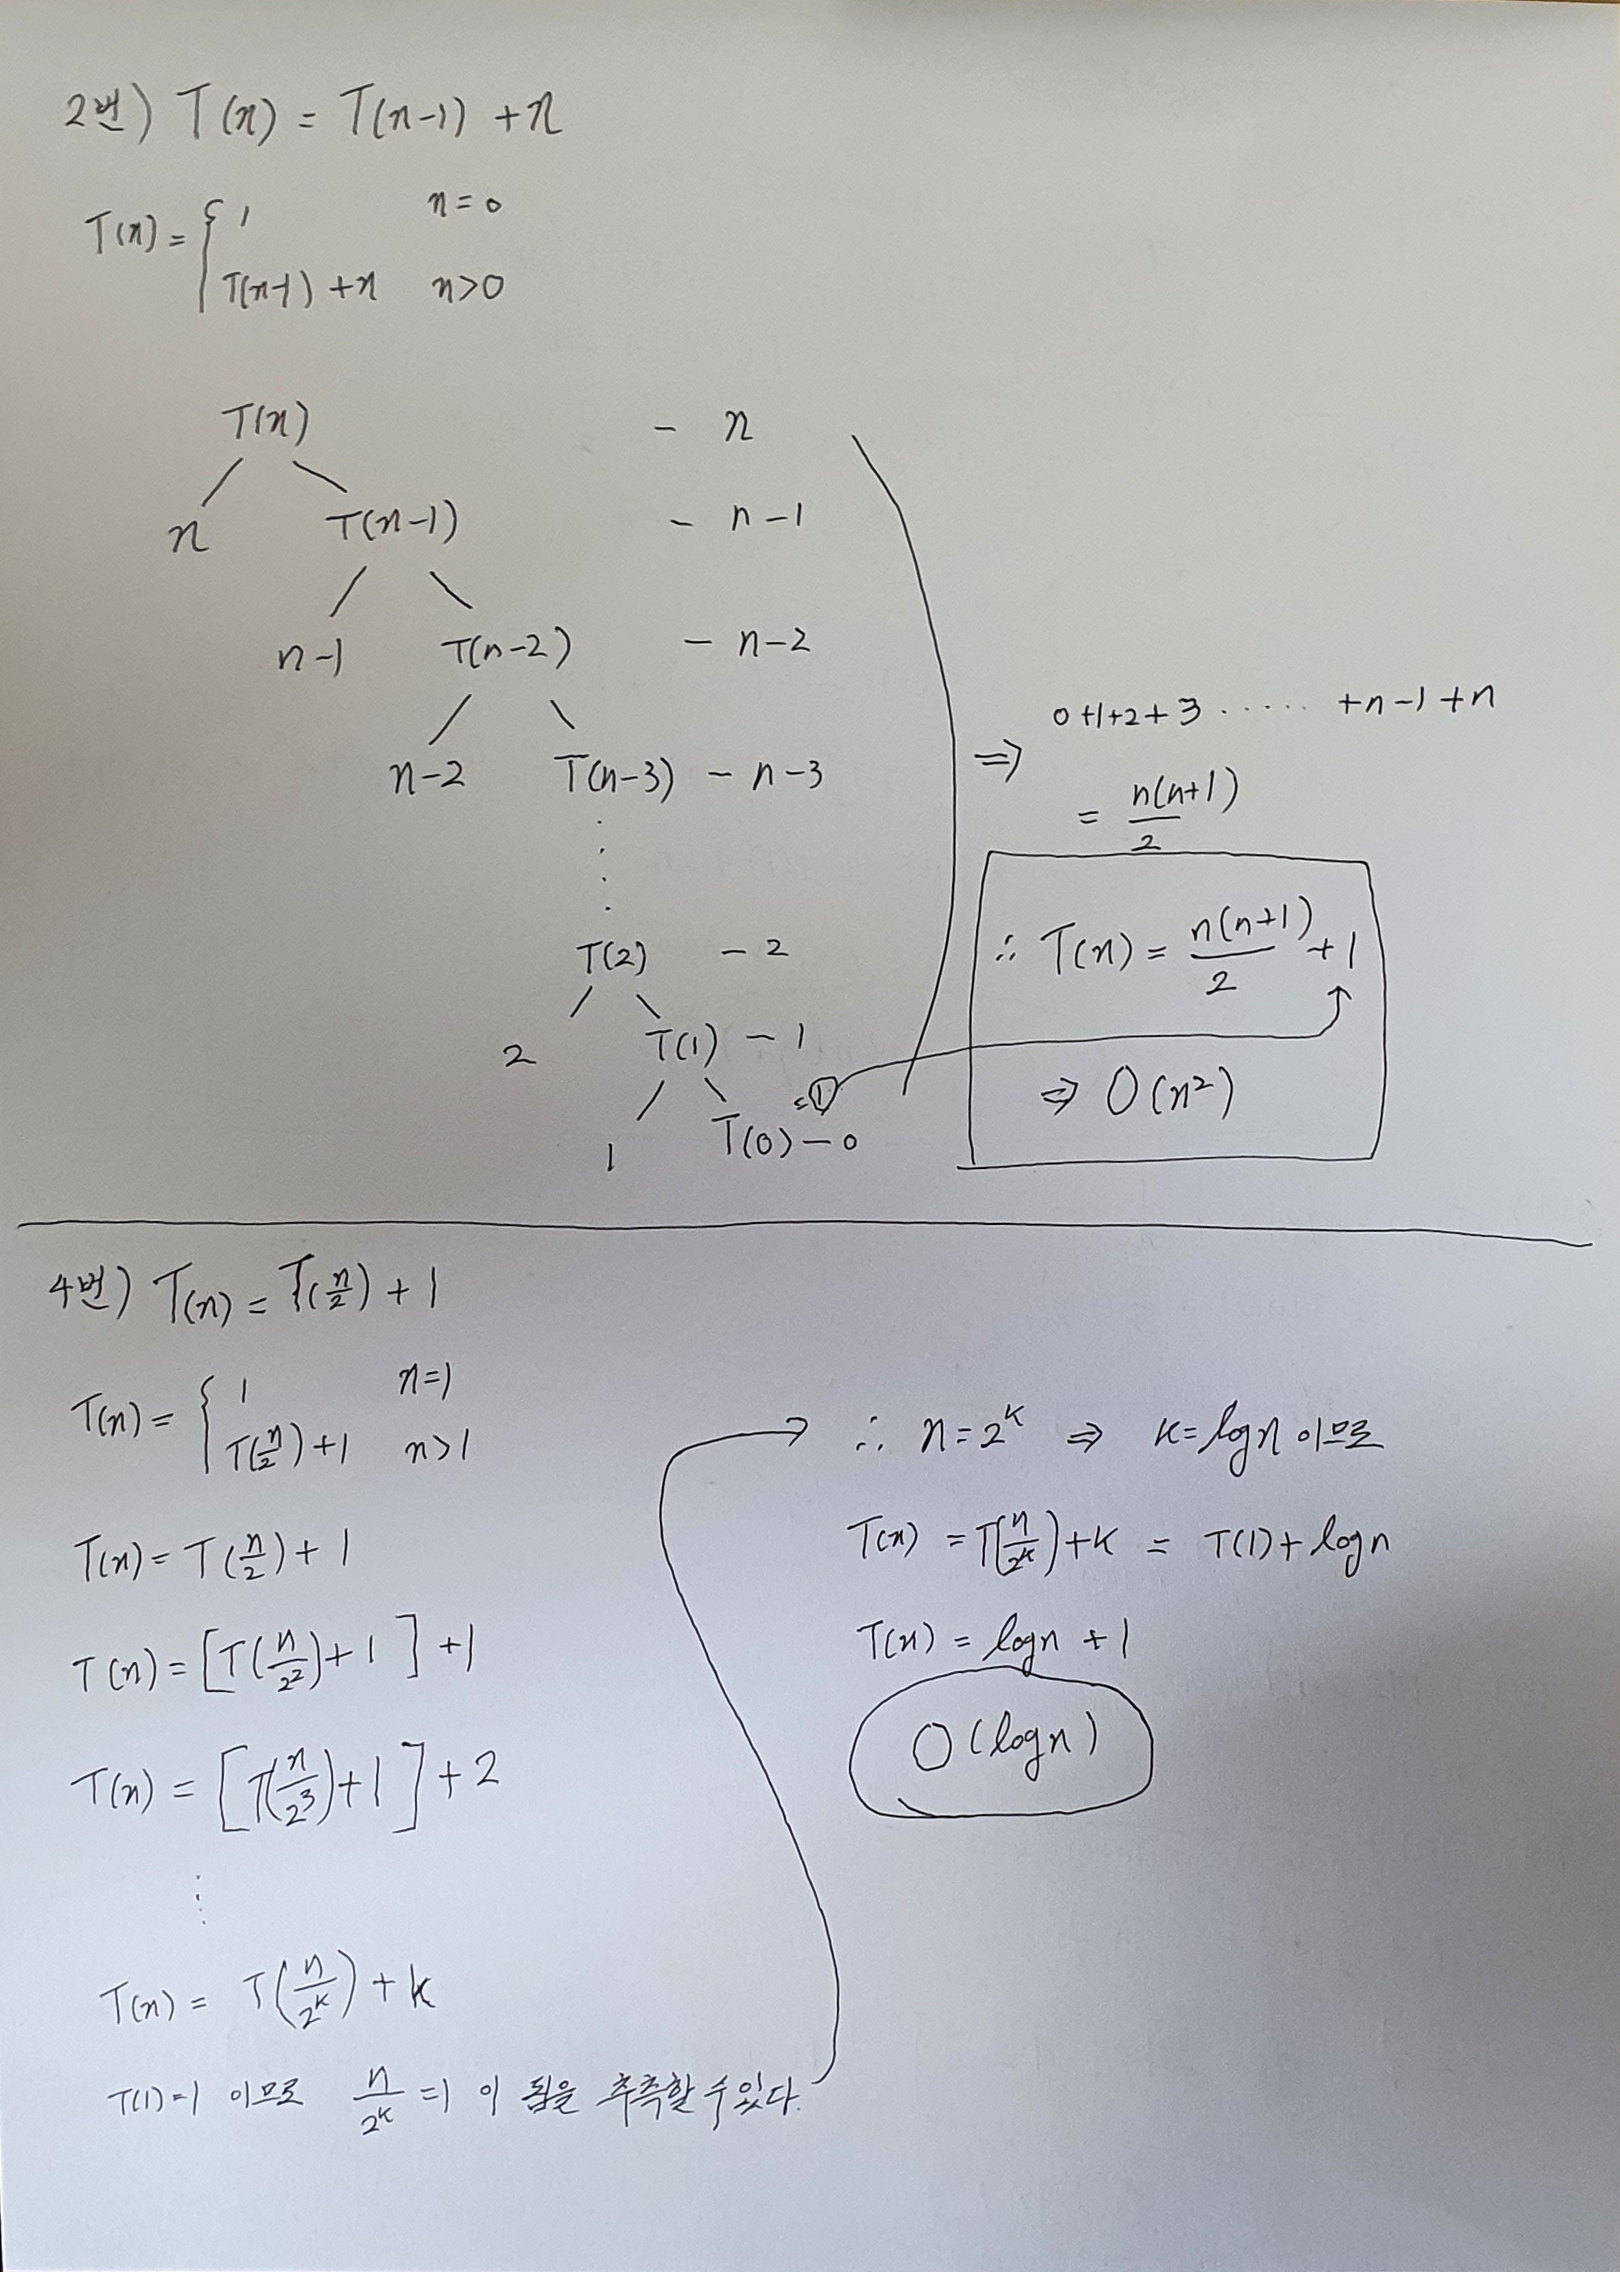 2번) T(n) = T(n-1) +n
T(n) = { 1 n=0
T(n-1) +n n>0
T(n) - n
n T(n-1) - n-1
n-1 T(n-2) - n-2
n-2 T(n-3) - n-3
⇒ 0+1+2+3 ······ +n-1+n
= n(n+1)/2
T(2) - 2
2 T(1) - 1
=①
1 T(0) - 0
∴ T(n) = n(n+1)/2 +1
⇒ O(n²)
4번) T(n) = T(n/2) + 1
T(n) = { 1 n=1
T(n/2)+1 n>1
T(n) = T(n/2) + 1
T(n) = [T(n/2²)+1] +1
T(n) = [T(n/2³)+1] +2
T(n) = T(n/2^k) + k
T(1)=1 이므로 n/2^k =1 이 됨을 추측할 수 있다.
∴ n=2^k ⇒ k=logn 이므로
T(n) = T(n/2^k)+k = T(1)+logn
T(n) = logn +1
O(logn)